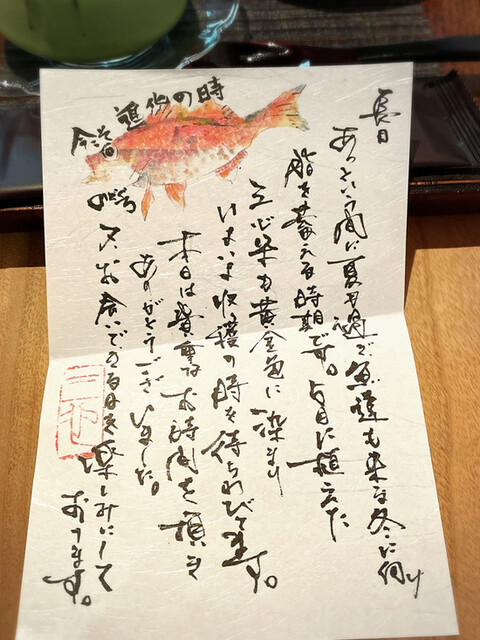 長月
あっという間に夏も過ぎ魚達も来る冬に向け
脂を蓄える時期です。五月に植えた
三心米も黄金色に染まり
いまいま収穫の時を待ちわびてます。
本日は貴重なお時間を頂き
ありがとうございました。
又、お会いできる日を楽しみにして
おります。
の時
のどぐろ
三心